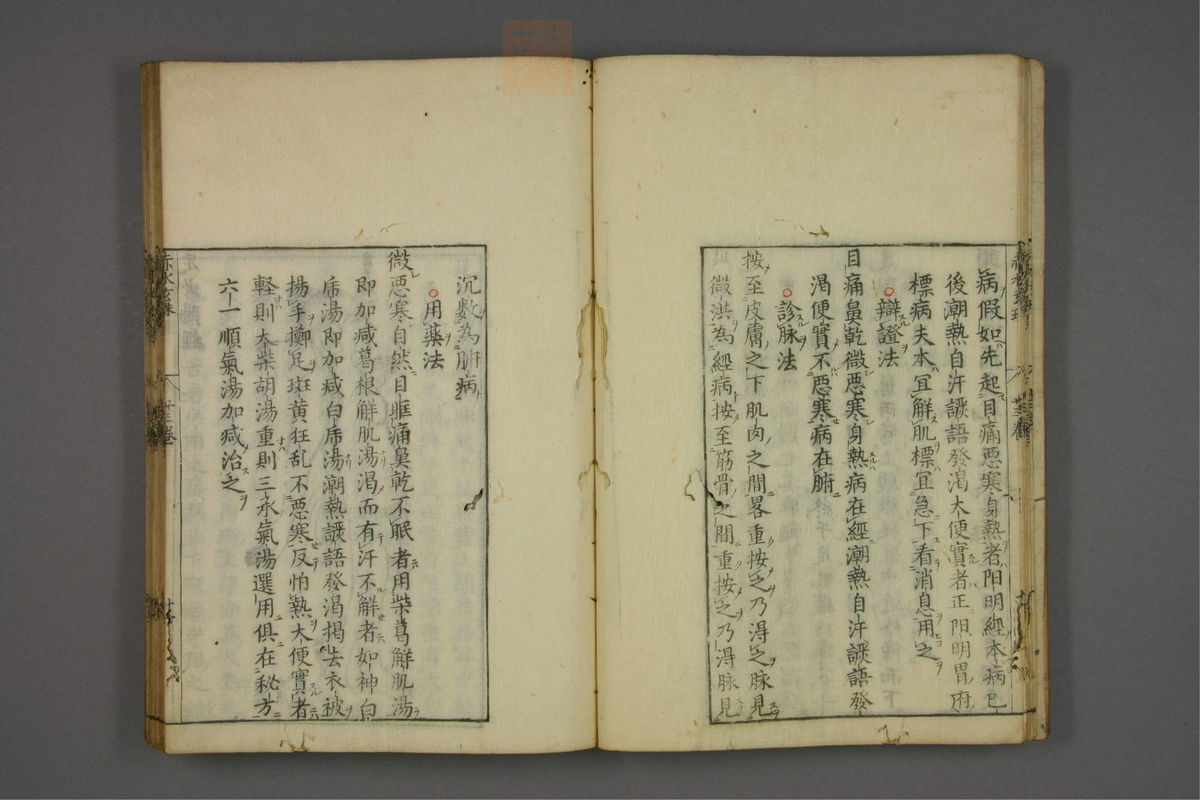 病假如先起目痛悪寒身熱者陽明經本病已
後潮熱自汗譫語發渇大便實者正陽明胃府
標病夫本冝解肌標冝急下看消息用之
○辯證法
目痛鼻乾微悪寒身熱病在經潮熱自汗譫語發
渇便實不悪寒病在腑
○診脉法
按至皮膚之下肌肉之間畧重按之乃淂之脉見
微洪為經病按至筋骨之間重按之乃淂脉見
沉数為腑病
○用藥法
微悪寒自然目眶痛鼻乾不眠者用柴葛解肌湯
即加减葛根解肌湯渇而有汗不解者如神白
虎湯即加减白虎湯潮熱譫語發渇揭去衣被
揚手擲足斑黄狂乱不悪寒反怕熱大便實者
軽則大柴胡湯重則三承氣湯選用俱在秘方
六一順氣湯加减治之
赤水玄珠
廿三卷